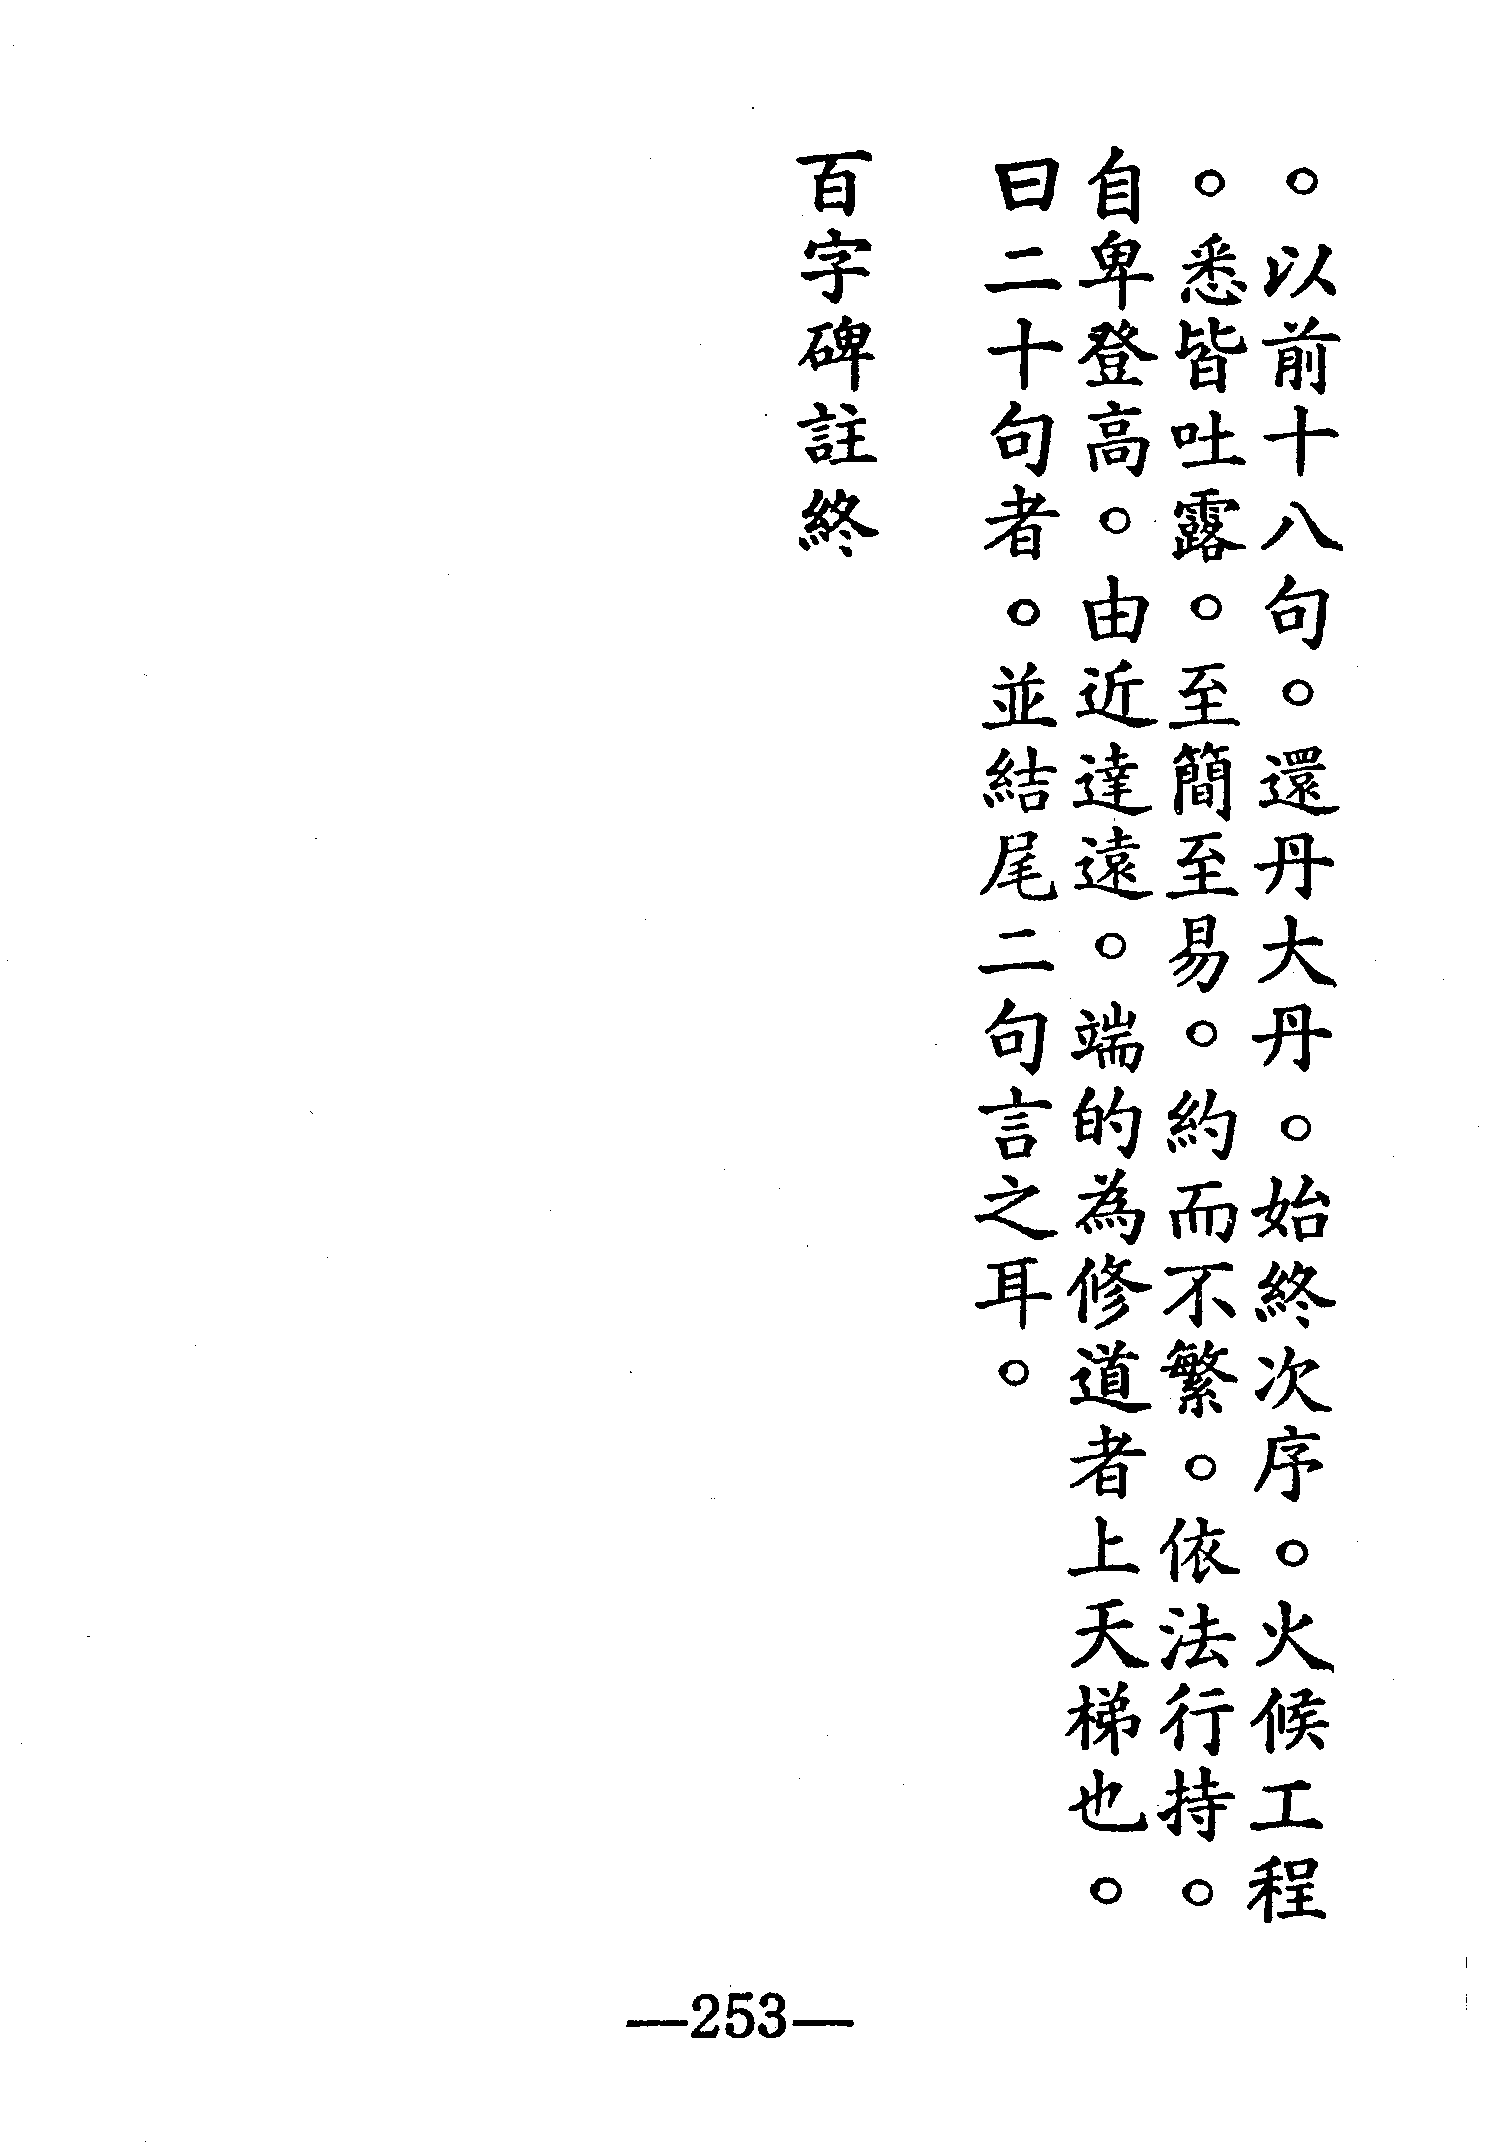 。以前十八句。還丹大丹。始終次序。火候工程
。悉皆吐露。至簡至易。約而不繁。依法行持。
自卑登高。由近達遠。端的為修道者上天梯也。
曰二十句者。並結尾二句言之耳。
百字碑註終
—253—